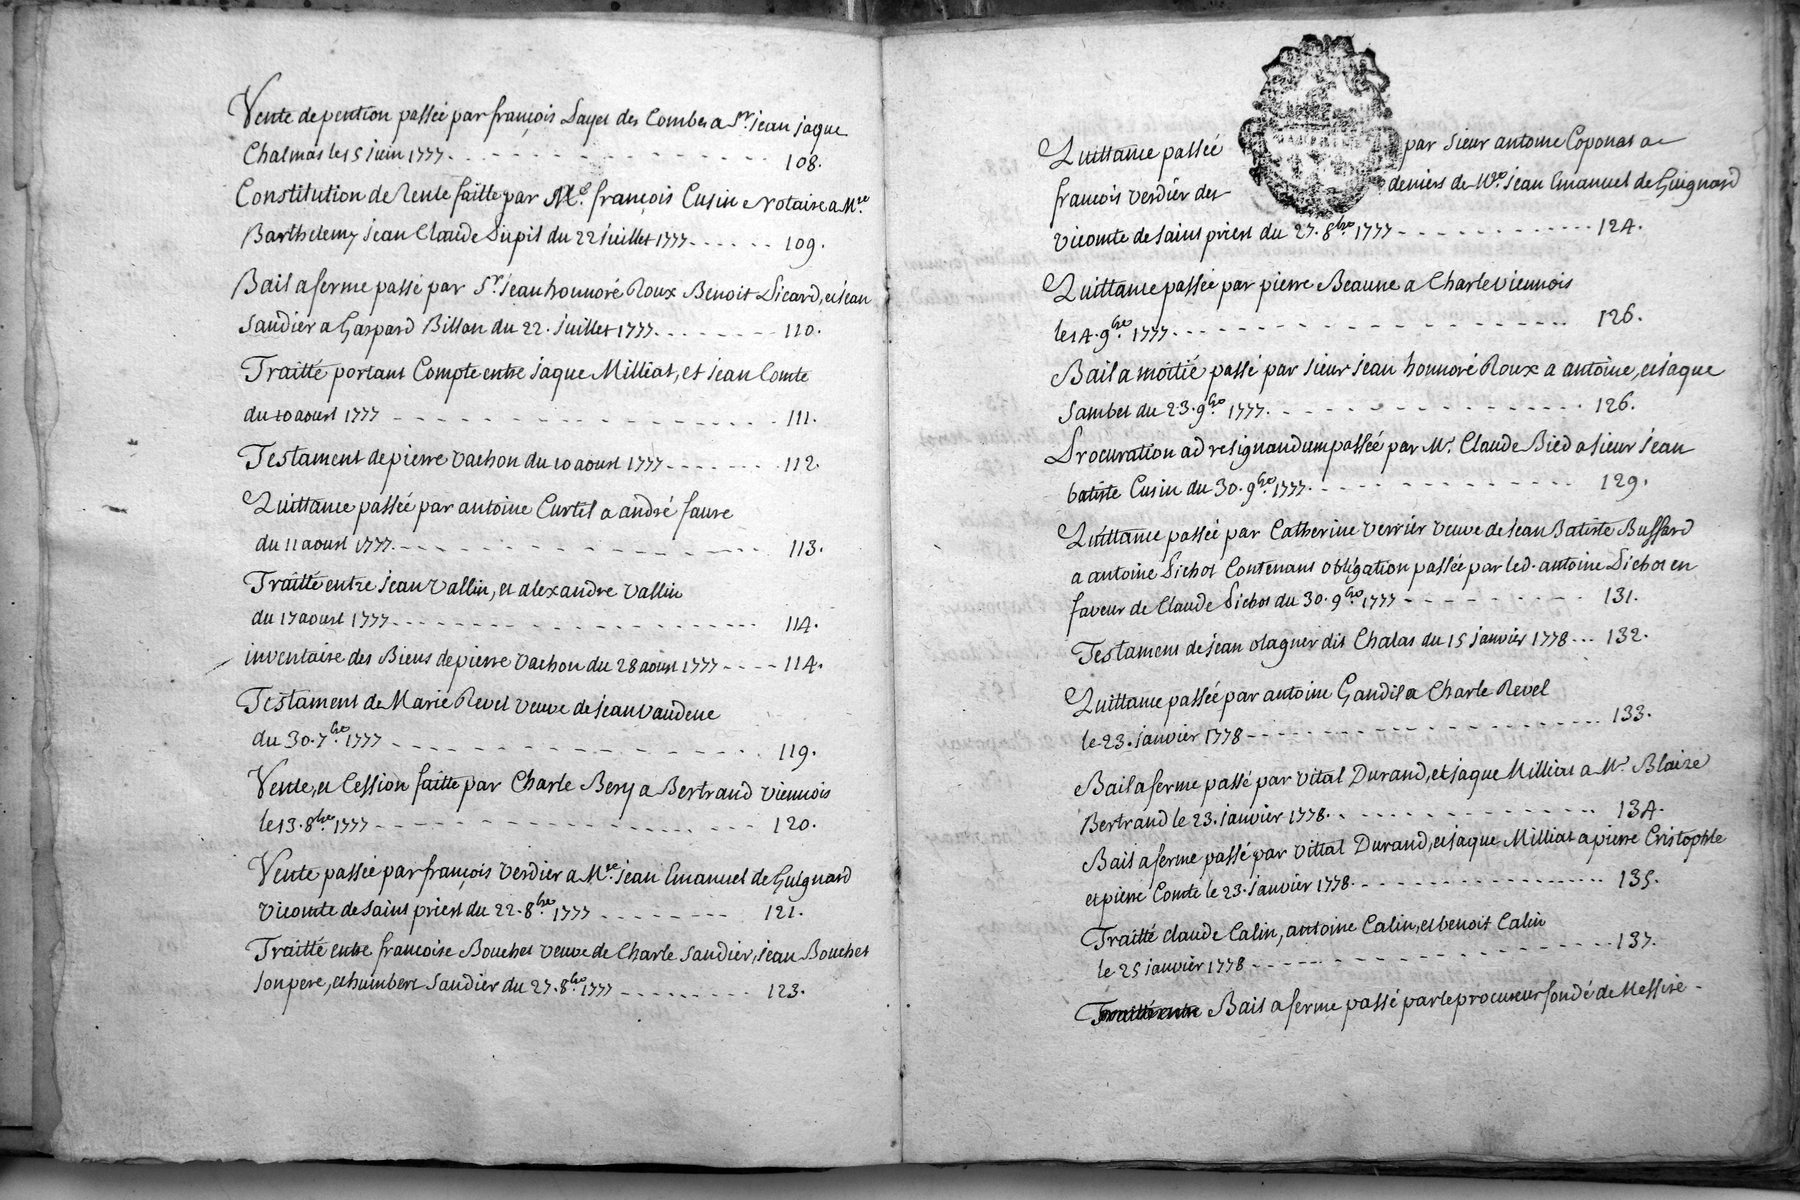 Vente de pention passée par françois Payet des Combes a Sr. jean jaque
Chalmas le 15 juin 1777. 108.
Constitution de Rente faitte par Me. françois Cusin Notaire a Mre.
Barthelemy jean Claude Dupil du 22 juillet 1777 109.
Bail a ferme passé par Sr. jean honnoré Roux Benoit Sicard, et jean
Saudier a Gaspard Billon du 22. juillet 1777. 110.
Traitté portant Compte entre jaque Milliat, et jean Comte
du 10 aoust 1777 111.
Testament de pierre vachon du 10 aoust 1777 112
Quittance passée par antoine Curtil a andré faure
du 11 aoust 1777. 113.
Traitté entre jean vallin, et alexandre vallin
du 17 aoust 1777 114.
inventaire des Biens de pierre vachon du 28 aoust 1777 114.
Testament de Marie Revel veuve de jean vaudene
du 30. 7bre. 1777 119.
Vente, et Cession faitte par Charle Bery a Bertrand viennois
le 13. 8bre. 1777 120.
Vente passée par françois verdier a Mre. jean Emanuel de Guignard
vicomte de saint priest du 22. 8bre. 1777 121.
Traitté entre françoise Bouchet veuve de Charle Saudier, jean Bouchet
son pere, et humbert Saudier du 27. 8bre. 1777 123.
Quittance passée par sieur antoine Coponat a
françois verdier des deniers de Mre. jean Emanuel de Guignard
vicomte de saint priest du 27. 8bre. 1777 124.
Quittance passée par pierre Beaune a Charle viennois
le 14. 9bre. 1777. 126.
Bail a moitié passé par sieur jean honnoré Roux a antoine, et jaque
Sambet du 23. 9bre. 1777. 126.
Procuration ad resignandum passée par Mr. Claude Bied a sieur jean
batiste Cusin du 30. 9bre. 1777. 129.
Quittance passée par Catherine verrier veuve de jean Batiste Bussard
a antoine Pichot Contenant obligation passée par led. antoine Pichot en
faveur de Claude Pichot du 30. 9bre. 1777 131.
Testament de jean olagner dit Chalas du 15 janvier 1778 132.
Quittance passée par antoine Gandil a Charle Revel
le 23. janvier 1778 133.
Bail a ferme passé par vital Durand, et jaque Milliat a Mr. Blaize
Bertrand le 23. janvier 1778. 134.
Bail a ferme passé par vittal Durand, et jaque Milliat a pierre Cristophle
et pierre Comte le 23. janvier 1778. 135.
Traitté claude Calin, antoine Calin, et benoit Calin
le 25 janvier 1778 137.
Traitté entre Bail a ferme passé par le procureur fondé de Messire